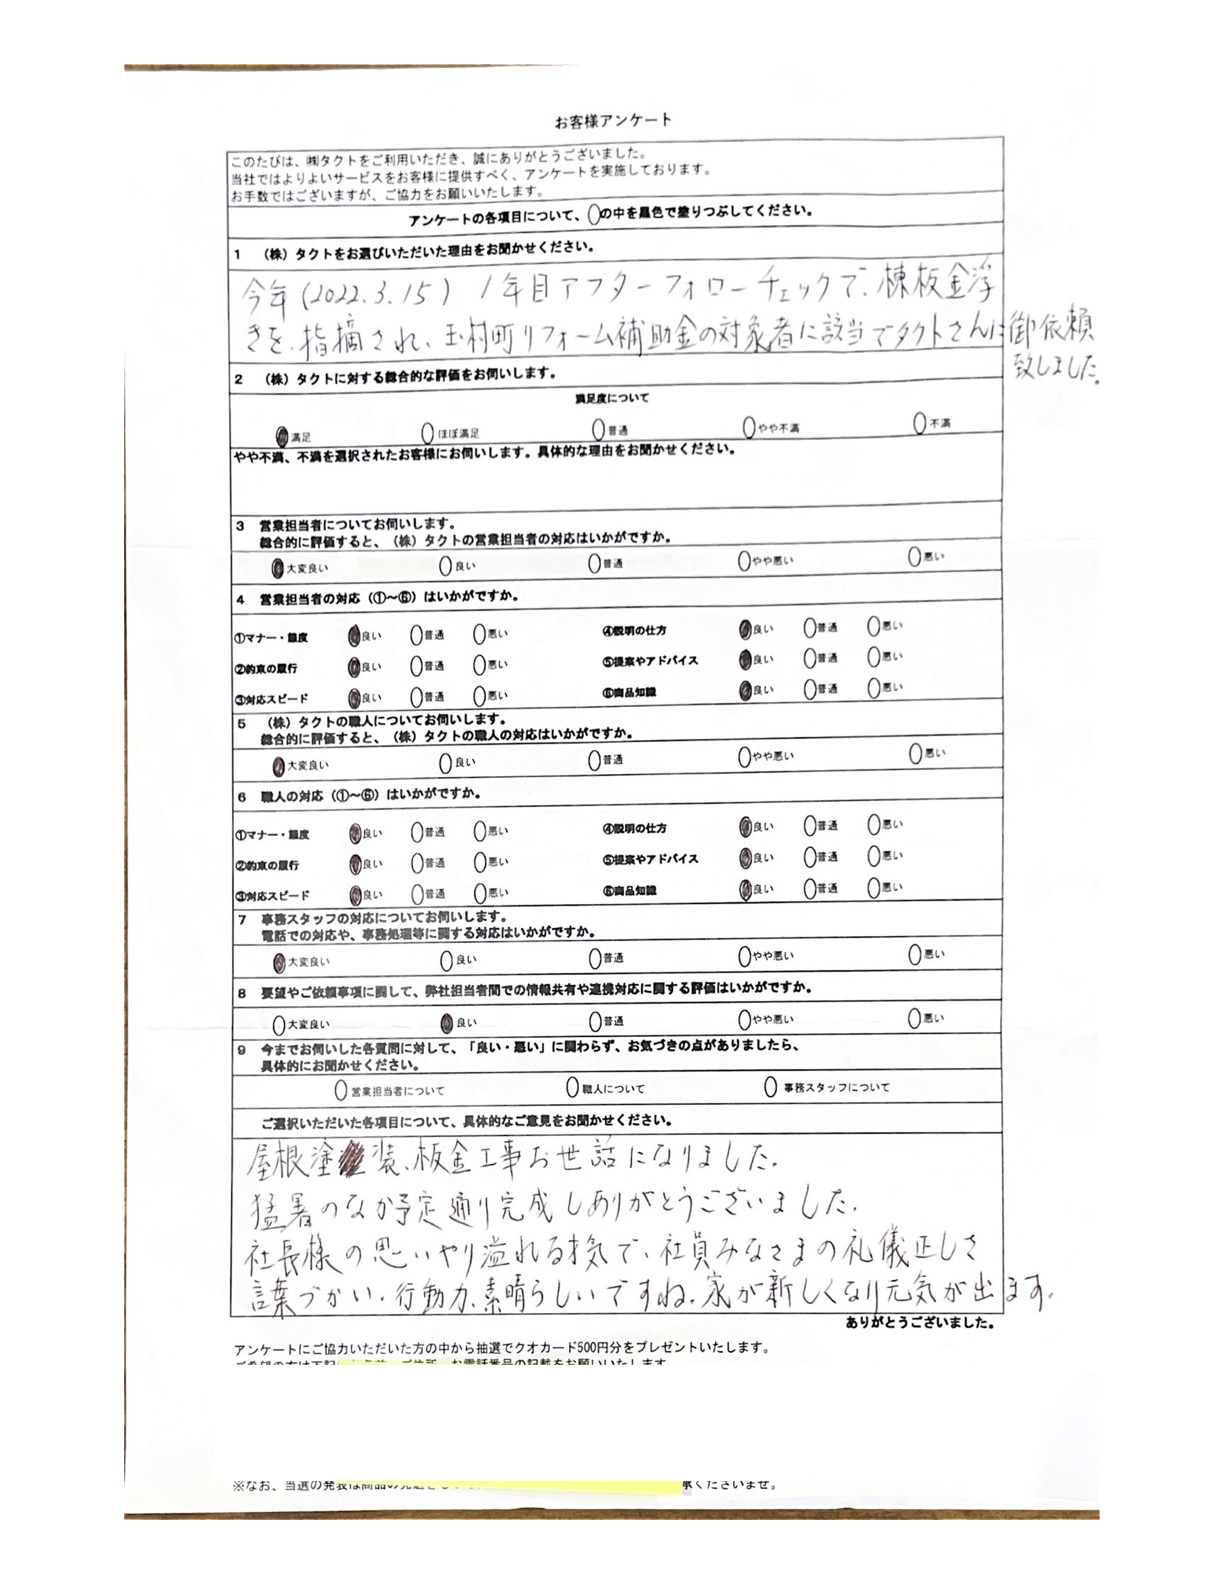 お客様アンケート
このたびは、㈱タクトをご利用いただき、誠にありがとうございました。
当社ではよりよいサービスをお客様に提供すべく、アンケートを実施しております。
お手数ではございますが、ご協力をお願いいたします。
アンケートの各項目について、○の中を黒色で塗りつぶしてください。
1 （株）タクトをお選びいただいた理由をお聞かせください。
今年(2022.3.15) 1年目アフターフォローチェックで、棟板金浮
きを、指摘され、玉村町リフォーム補助金の対象者に該当でタクトさんに御依頼
致しました。
2 （株）タクトに対する総合的な評価をお伺いします。
満足度について
満足 ○ほぼ満足 ○普通 ○やや不満 ○不満
やや不満、不満を選択されたお客様にお伺いします。具体的な理由をお聞かせください。
3 営業担当者についてお伺いします。
総合的に評価すると、（株）タクトの営業担当者の対応はいかがですか。
大変良い ○良い ○普通 ○やや悪い ○悪い
4 営業担当者の対応（①～⑥）はいかがですか。
①マナー・態度 良い ○普通 ○悪い ④説明の仕方 良い ○普通 ○悪い
②約束の履行 良い ○普通 ○悪い ⑤提案やアドバイス 良い ○普通 ○悪い
③対応スピード 良い ○普通 ○悪い ⑥商品知識 良い ○普通 ○悪い
5 （株）タクトの職人についてお伺いします。
総合的に評価すると、（株）タクトの職人の対応はいかがですか。
大変良い ○良い ○普通 ○やや悪い ○悪い
6 職人の対応（①～⑥）はいかがですか。
①マナー・態度 良い ○普通 ○悪い ④説明の仕方 良い ○普通 ○悪い
②約束の履行 良い ○普通 ○悪い ⑤提案やアドバイス 良い ○普通 ○悪い
③対応スピード 良い ○普通 ○悪い ⑥商品知識 良い ○普通 ○悪い
7 事務スタッフの対応についてお伺いします。
電話での対応や、事務処理等に関する対応はいかがですか。
大変良い ○良い ○普通 ○やや悪い ○悪い
8 要望やご依頼事項に関して、弊社担当者間での情報共有や連携対応に関する評価はいかがですか。
○大変良い 良い ○普通 ○やや悪い ○悪い
9 今までお伺いした各質問に対して、「良い・悪い」に関わらず、お気づきの点がありましたら、
具体的にお聞かせください。
○営業担当者について ○職人について ○事務スタッフについて
ご選択いただいた各項目について、具体的なご意見をお聞かせください。
屋根塗装、板金工事お世話になりました。
猛暑のなか予定通り完成しありがとうございました。
社長様の思いやり溢れる換気で、社員みなさまの礼儀正しさ
言葉づかい、行動力、素晴らしいですね。家が新しくなり元気が出ます。
ありがとうございました。
アンケートにご協力いただいた方の中から抽選でクオカード500円分をプレゼントいたします。
お電話番号の記載をお願いいたします
※なお、当選の発表は商品の
承くださいませ。